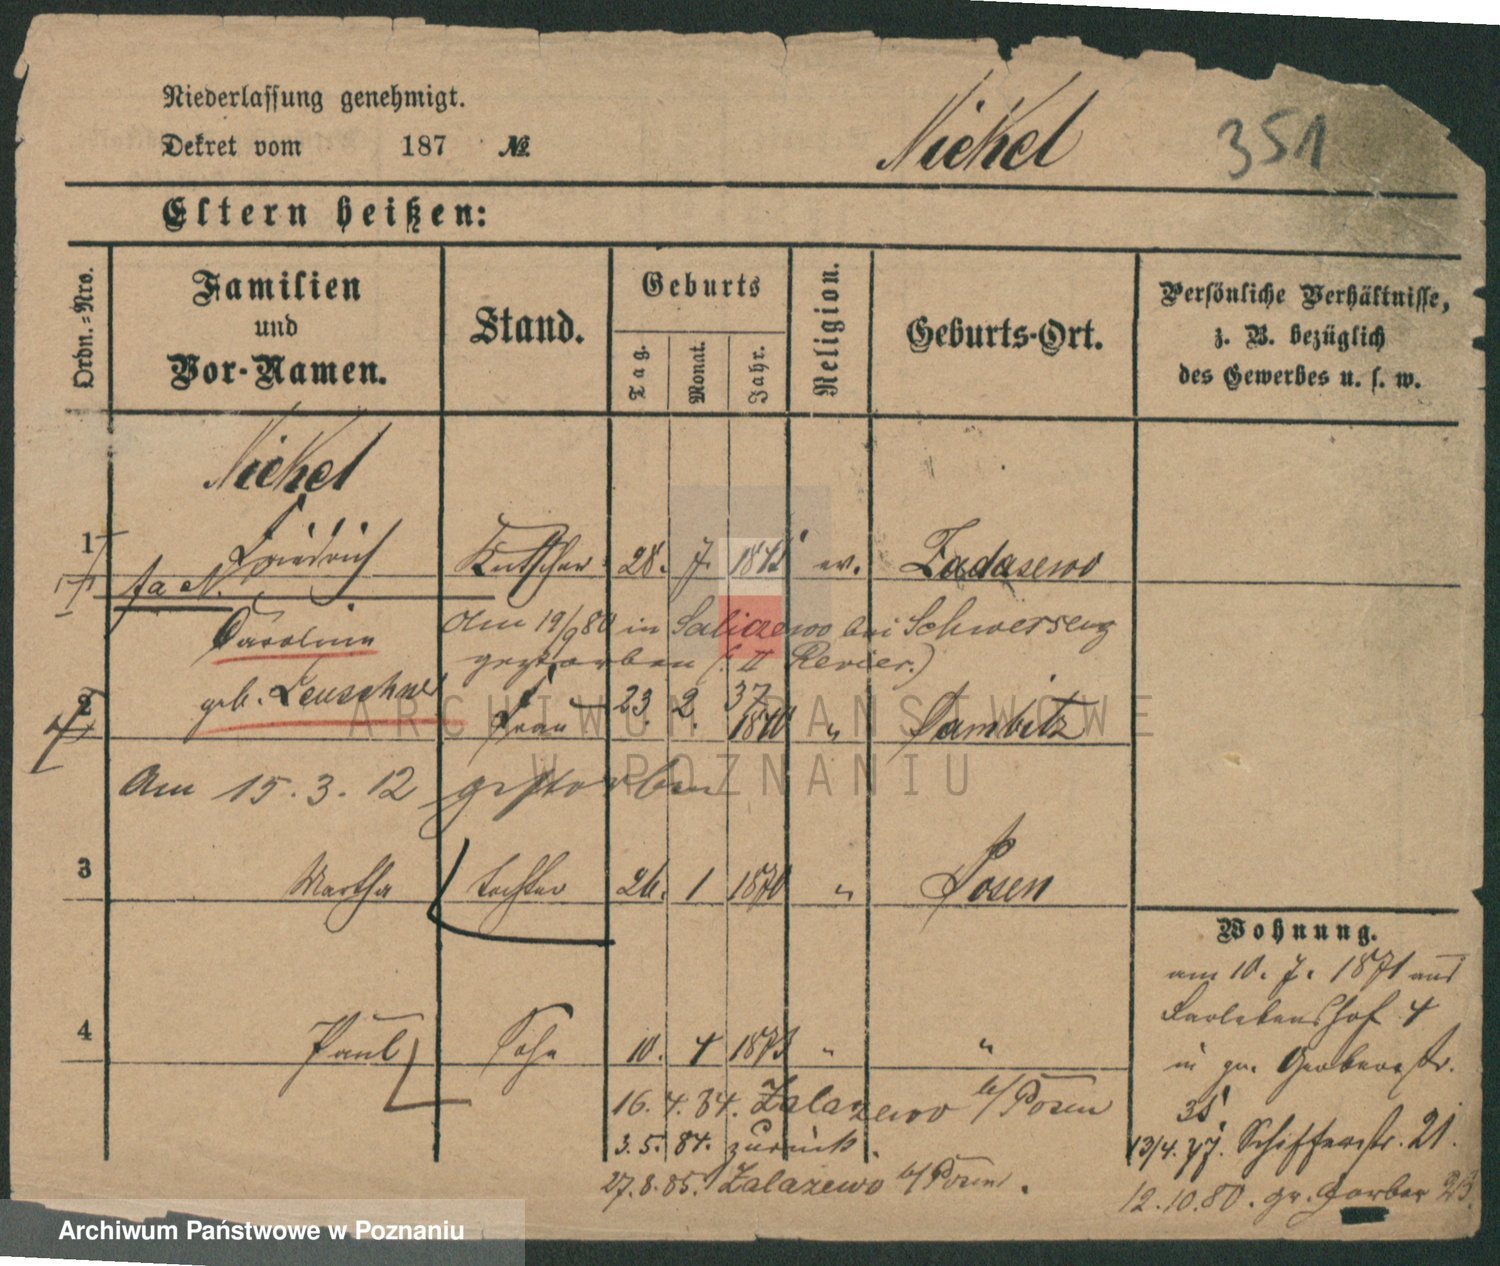 Niederlassung genehmigt.
Dekret vom 187 №
Nickel
351
Eltern heißen:
Ordn.-Nro.
Familien
und
Vor-Namen.
Stand.
Geburts
Tag.
Monat.
Jahr.
Religion.
Geburts-Ort.
Persönliche Verhältnisse,
z. B. bezüglich
des Gewerbes u. s. w.
Nickel
1 Friedrich Kutscher 28. 7. 1845 ev. Zadasewo
Ja N.
Caroline
Am 19/9 80 in Saliczewo bei Schwersenz
gestorben (: II Revier.)
2 geb. Leuschner Frau 23. 2. 37 1840 " Sambitz
Am 15. 3. 12 gestorben
3 Martha Tochter 26. 1 1870 " Posen
4 Paul Sohn 10. 4 1873 " "
16. 4. 84. Zalazewo b/Posen
3. 5. 84. zurück.
27. 8. 85. Zalazewo b/Posen.
Wohnung.
am 10. 7. 1871 aus
4
in gr. Gerberstr.
35
13/4. 77. Schifferstr. 21.
12. 10. 80. gr. Gerber 23.
ARCHIWUM PAŃSTWOWE
W POZNANIU
Archiwum Państwowe w Poznaniu